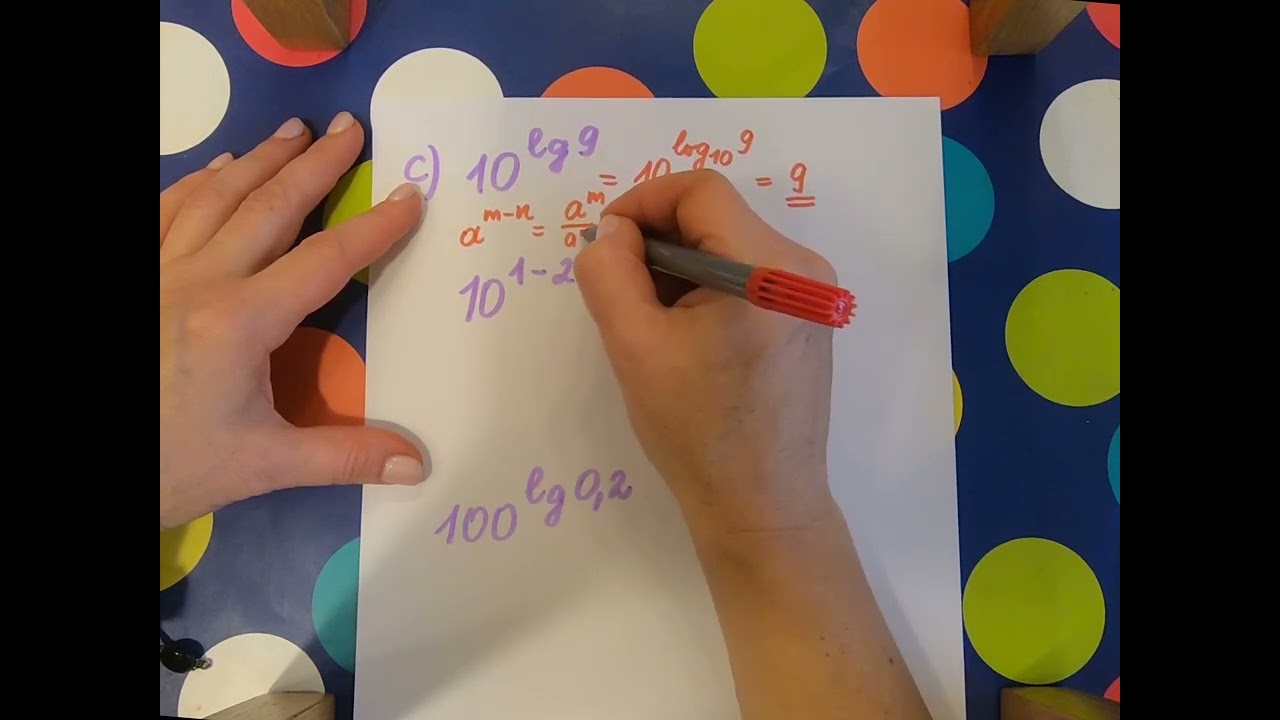 c) 10^lg 9 = 10^log₁₀ 9 = 9
a^m-n = a^m / a
10^1-2
100^lg 0,2